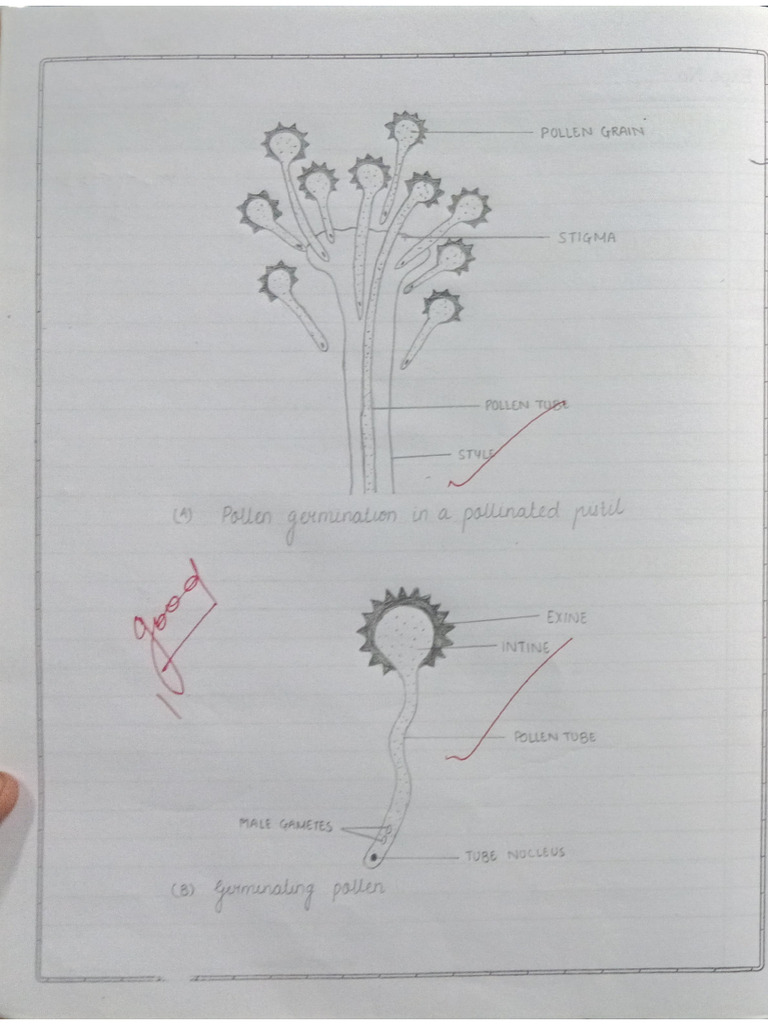 POLLEN GRAIN
STIGMA
POLLEN TUBE
STYLE
(A) Pollen germination in a pollinated pistil
good
EXINE
INTINE
POLLEN TUBE
MALE GAMETES
TUBE NUCLEUS
(B) Germinating pollen